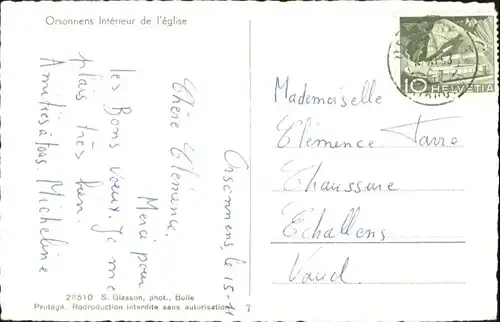 Orsonnens Intérieur de l'église
Orsonnens, le 15-11
Chère Clémence.
Merci pour
les Bons vœux. Je me
plais très bien.
Amitiés à tous. Micheline
28510 S. Glasson, phot., Bulle
Protégé. Rodroduction interdite sans autorisation
7
10 HELVETIA
Mademoiselle
Clémence Favre
Chaussure
Echallens
Vaud.